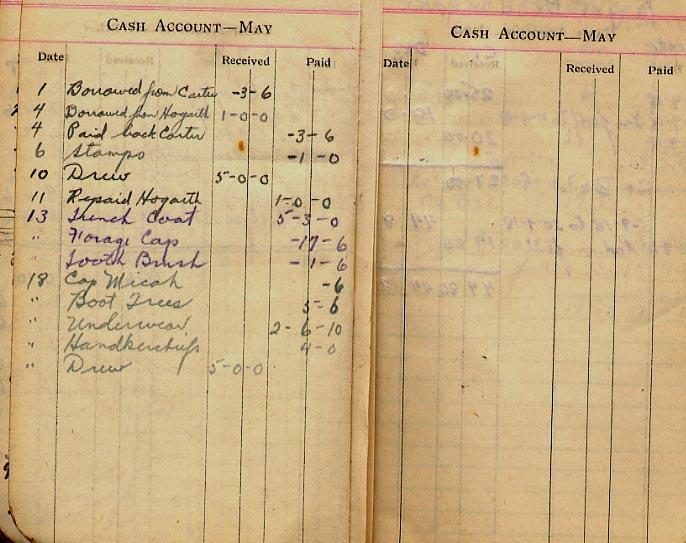 CASH ACCOUNT—MAY
Date Received Paid
1 Borrowed from Carter -3-6
4 Borrowed from Hogarth 1-0-0
4 Paid back Carter -3-6
6 Stamps -1-0
10 Drew 5-0-0
11 Repaid Hogarth 1-0-0
13 Trench Coat 5-3-0
" Forage Cap -17-6
" Tooth Brush -1-6
18 Cap -6
" Boot Trees 5-6
" Underwear 2-6-10
" Handkerchiefs 4-0
" Drew 5-0-0
CASH ACCOUNT—MAY
Date Received Paid